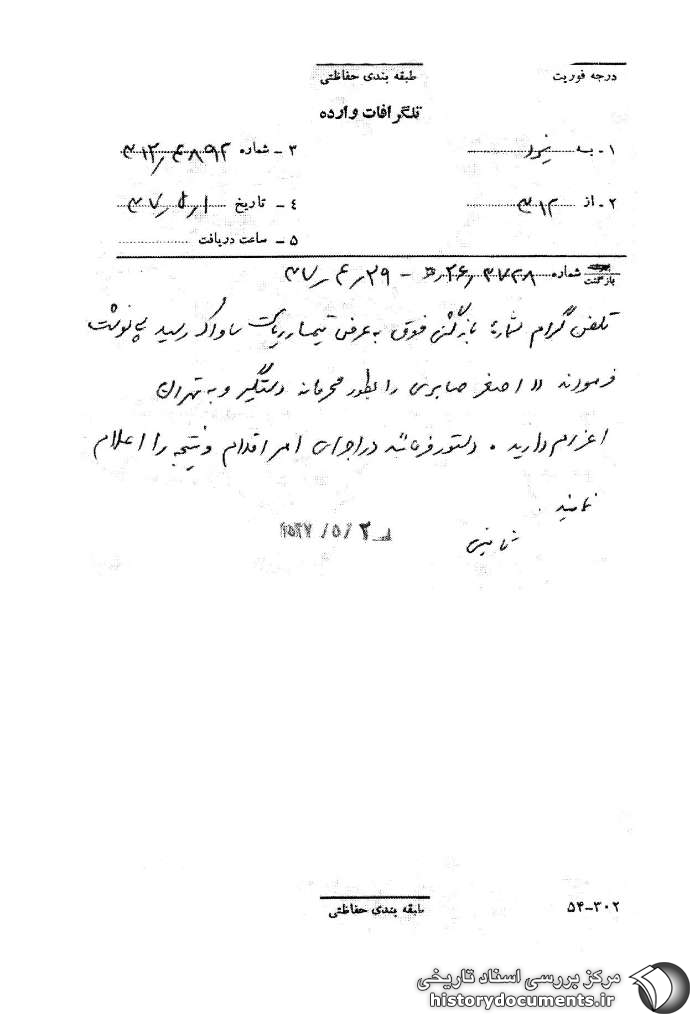 درجه فوریت
طبقه بندی حفاظتی
تلگرافات وارده
۱ - به
۳ - شماره ۳۱۲/۴۸۹۲
۲ - از ۳۱۲
۴ - تاریخ ۳۷/۵/۱
۵ - ساعت دریافت
بازگشت شماره ۲۶/۳۷۲۸ - ۳۷/۴/۲۹
تلفن گرام شماره بازگشتی فوق به عرض تیمسار ریاست ساواک رسید پی نوشت
فرمودند "اصغر صابری را بطور محرمانه دستگیر و به تهران
اعزام دارید . دستور فرمائید در اجرای امر اقدام و نتیجه را اعلام
نمایند .
۲۵۳۷/۵/۲
۵۴-۳۰۲
طبقه بندی حفاظتی
مرکز بررسی اسناد تاریخی
historydocuments.ir